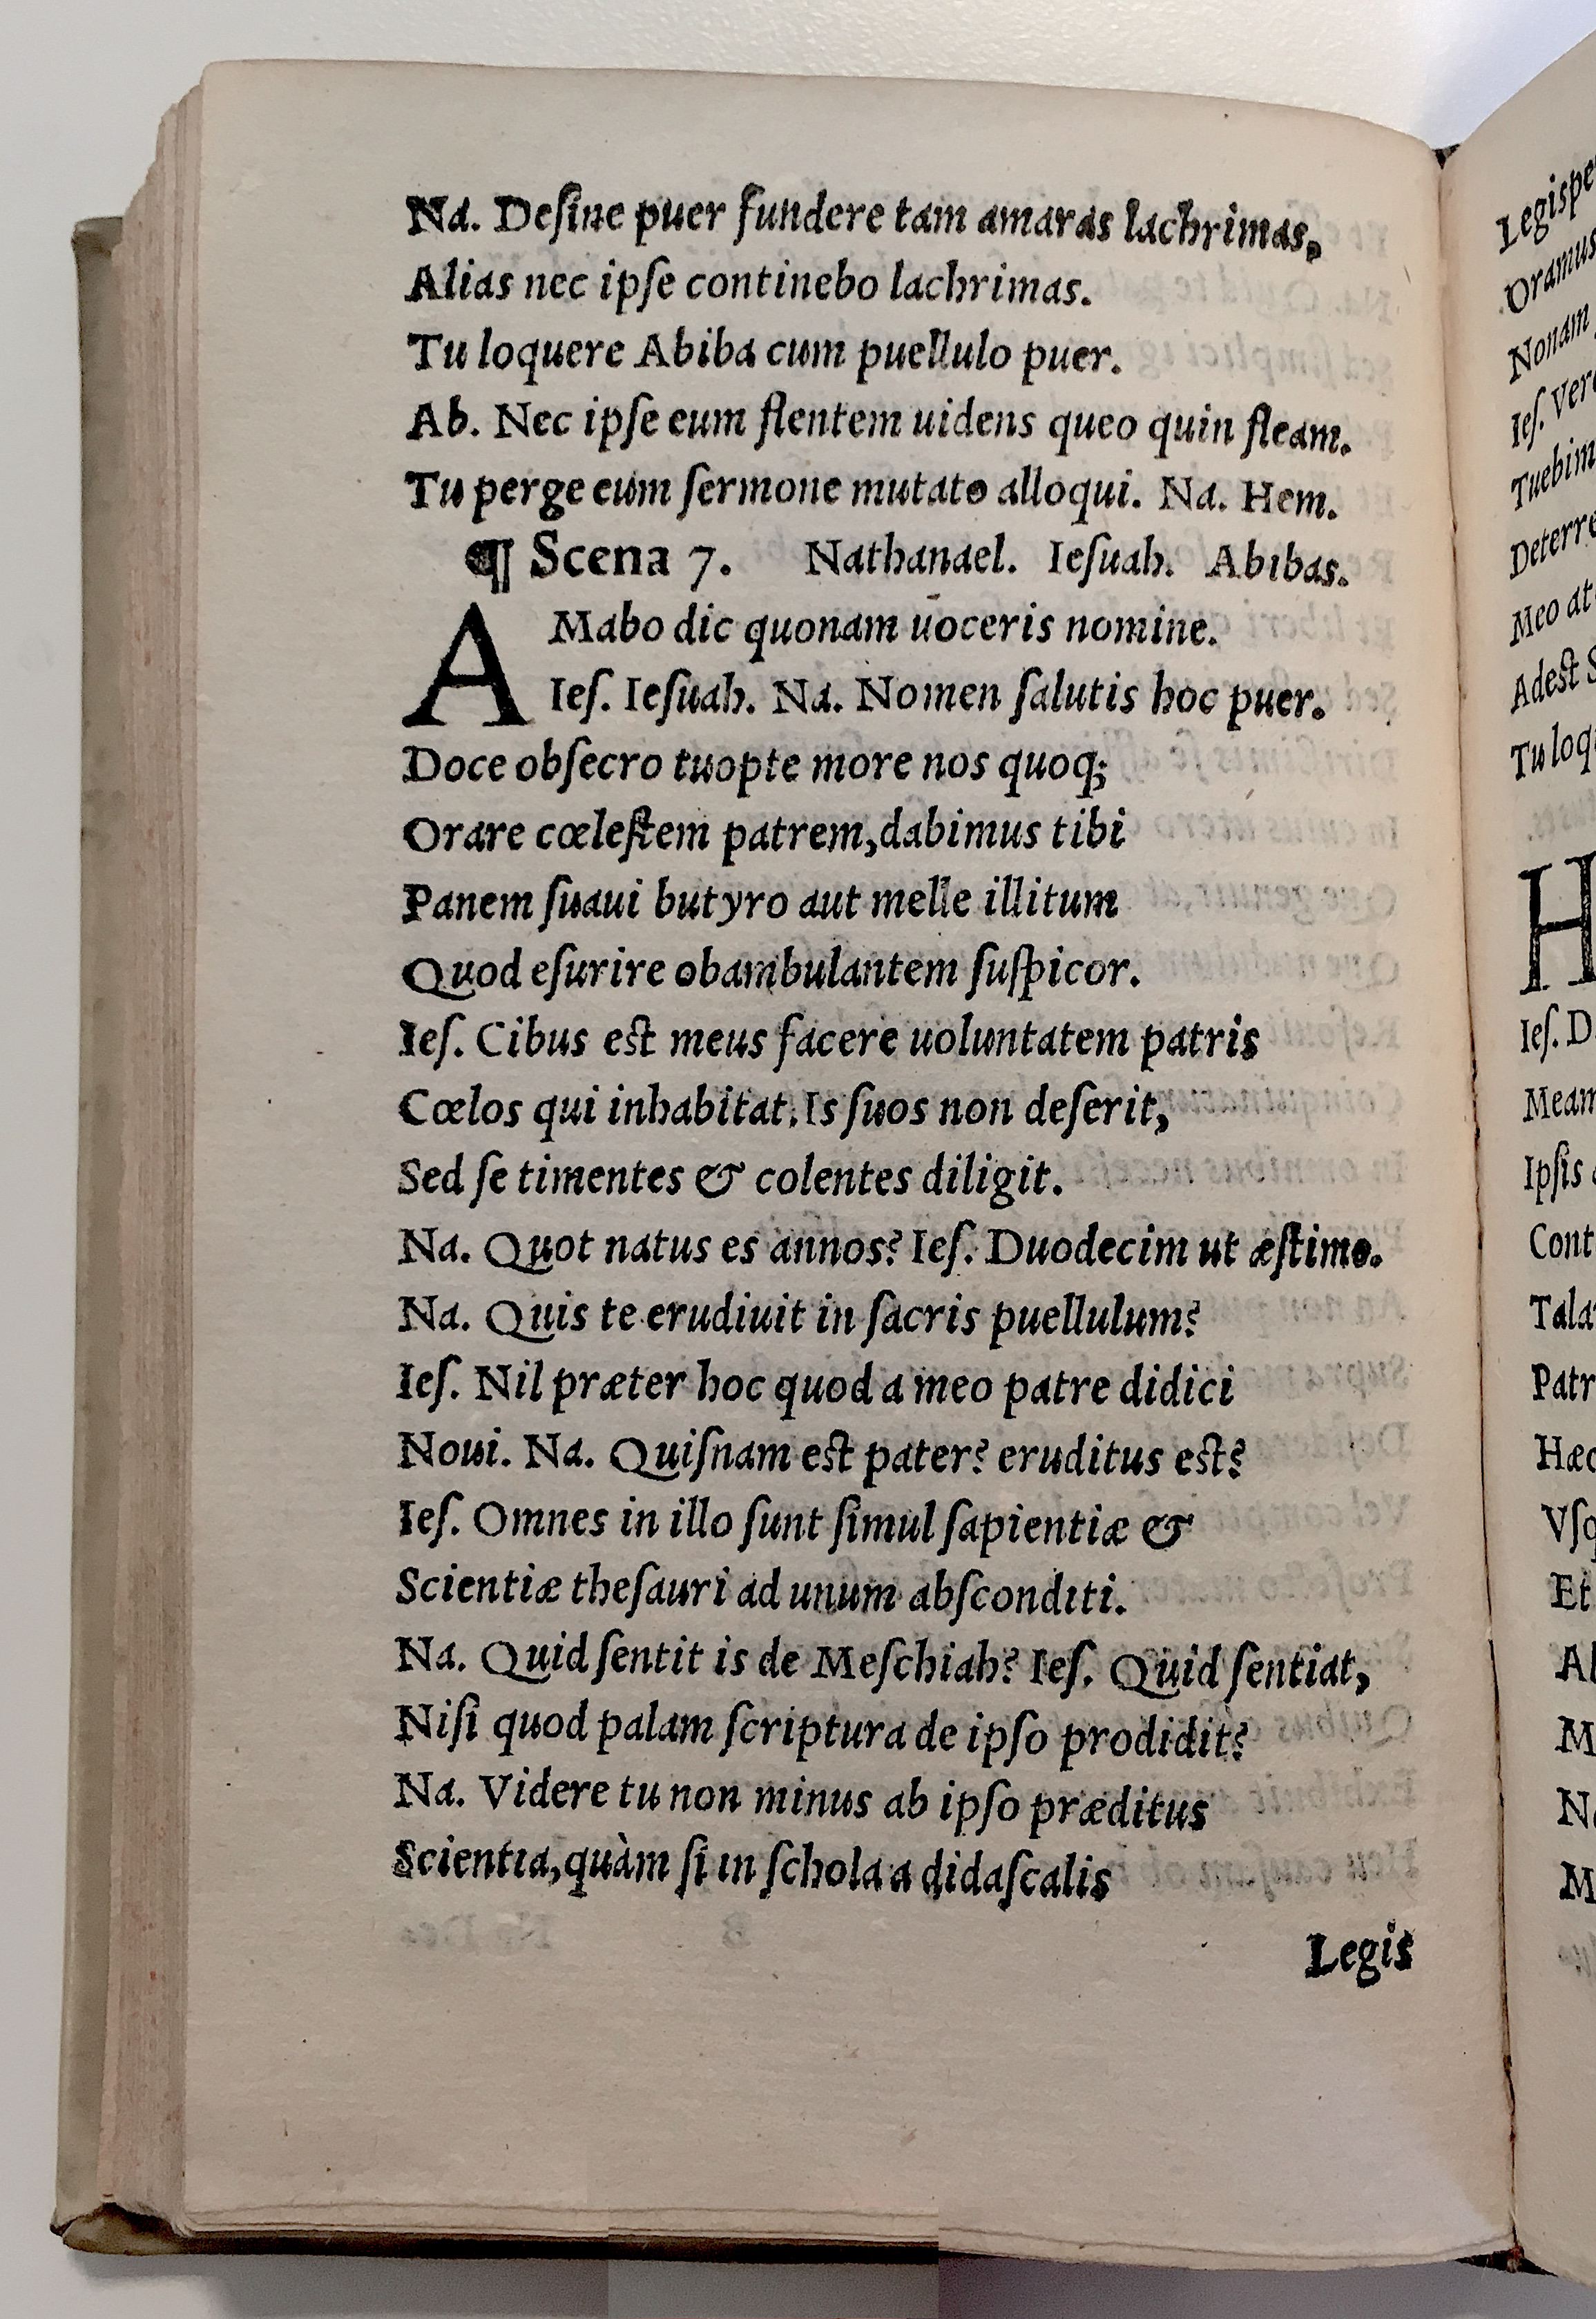 Na. Deſine puer fundere tam amaras lachrimas,
Alias nec ipſe continebo lachrimas.
Tu loquere Abiba cum puellulo puer.
Ab. Nec ipſe eum flentem uidens queo quin fleam.
Tu perge eum ſermone mutato alloqui. Na. Hem.
¶ Scena 7. Nathanael. Ieſuah. Abibas.
AMabo dic quonam uoceris nomine.
Ieſ. Ieſuah. Na. Nomen ſalutis hoc puer.
Doce obſecro tuopte more nos quoq;
Orare cœleſtem patrem, dabimus tibi
Panem ſuaui butyro aut melle illitum
Quod eſurire obambulantem ſuſpicor.
Ieſ. Cibus eſt meus facere uoluntatem patris
Cœlos qui inhabitat. Is ſuos non deſerit,
Sed ſe timentes & colentes diligit.
Na. Quot natus es annos? Ieſ. Duodecim ut æſtimo.
Na. Quis te erudiuit in ſacris puellulum?
Ieſ. Nil præter hoc quod a meo patre didici
Noui. Na. Quiſnam eſt pater? eruditus eſt?
Ieſ. Omnes in illo ſunt ſimul ſapientiæ &
Scientiæ theſauri ad unum abſconditi.
Na. Quid ſentit is de Meſchiah? Ieſ. Quid ſentiat,
Niſi quod palam ſcriptura de ipſo prodidit?
Na. Videre tu non minus ab ipſo præditus
Scientia, quàm ſi in ſchola a didaſcalis
Legis
Oramus
Nonam
Ieſ.
Meo
Adeſt
Tu
H
Ieſ.
Ipſis
Et